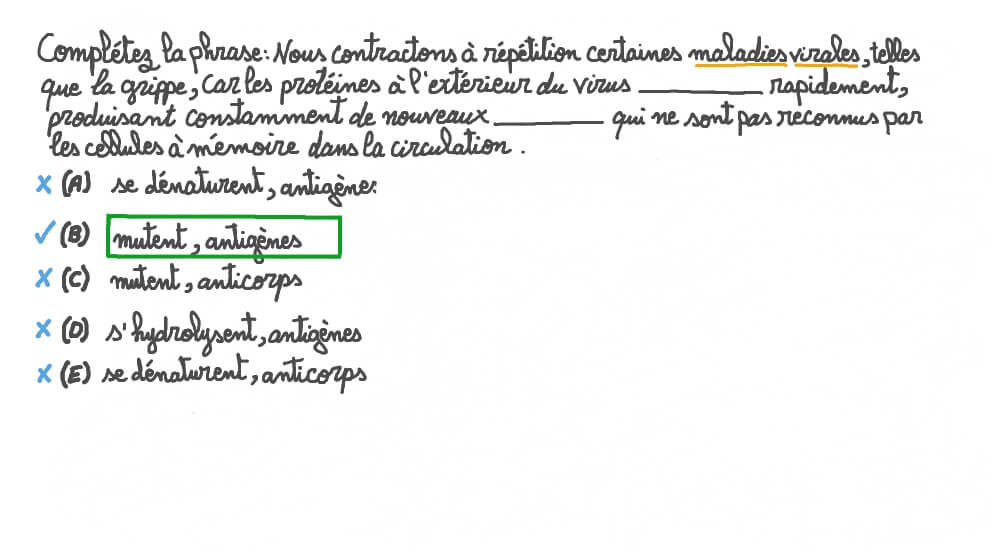 Complétez la phrase: Nous contractons à répétition certaines maladies virales, telles
que la grippe, car les protéines à l'extérieur du virus __________ rapidement,
produisant constamment de nouveaux __________ qui ne sont pas reconnus par
les cellules à mémoire dans la circulation.
x (A) se dénaturent, antigènes
✓ (B) mutent, antigènes
x (C) mutent, anticorps
x (D) s'hydrolysent, antigènes
x (E) se dénaturent, anticorps